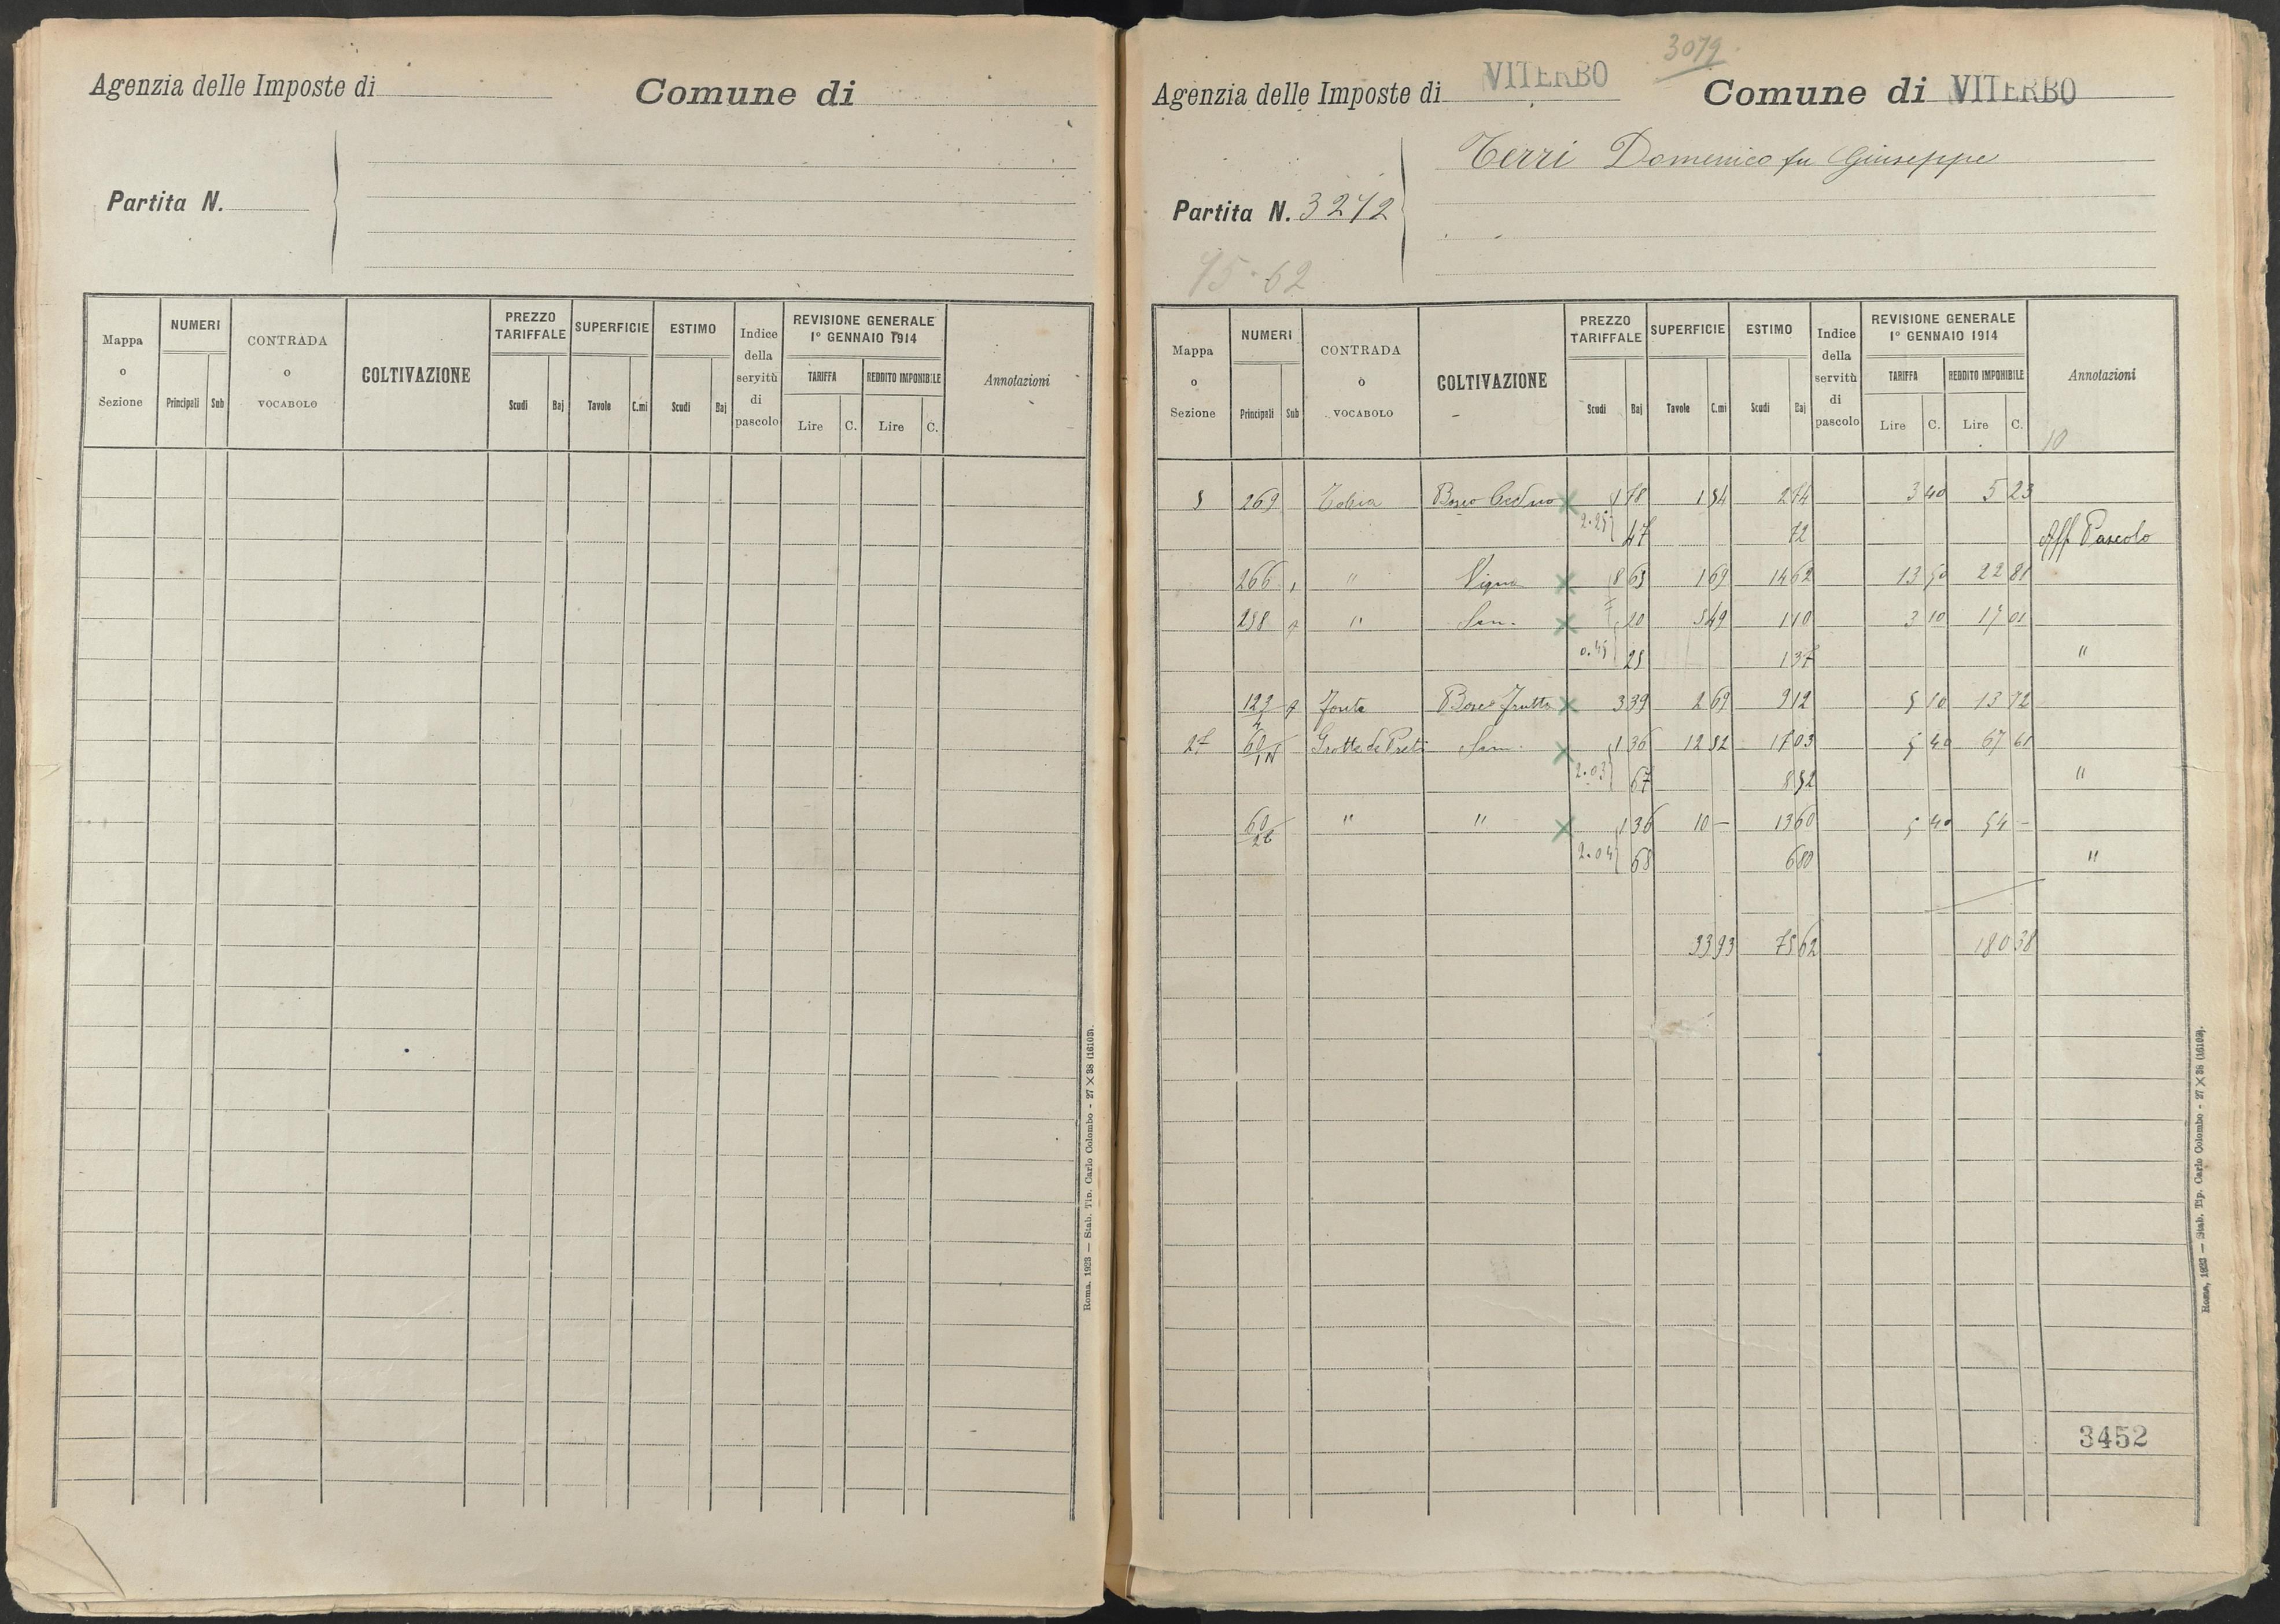 Agenzia delle Imposte di
Comune di
Partita N.
Mappa o Sezione
NUMERI
Principali Sub
CONTRADA o VOCABOLO
COLTIVAZIONE
PREZZO TARIFFALE
Scudi Baj
SUPERFICIE
Tavole C.mi
ESTIMO
Scudi Baj
Indice della servitù di pascolo
REVISIONE GENERALE
1° GENNAIO 1914
TARIFFA
Lire C.
REDDITO IMPONIBILE
Lire C.
Annotazioni
Roma, 1923 — Stab. Tip. Carlo Colombo - 27 × 38 (16103).
3079
Agenzia delle Imposte di VITERBO
Comune di VITERBO
Terri Domenico fu Giuseppe
Partita N. 3242
75.62
Mappa o Sezione
NUMERI
Principali Sub
CONTRADA o VOCABOLO
COLTIVAZIONE
PREZZO TARIFFALE
Scudi Baj
SUPERFICIE
Tavole C.mi
ESTIMO
Scudi Baj
Indice della servitù di pascolo
REVISIONE GENERALE
1° GENNAIO 1914
TARIFFA
Lire C.
REDDITO IMPONIBILE
Lire C.
Annotazioni
10
5 269 Tobia Bosco Ceduo × 1 78 1 54 2 74 3 40 5 23
2.25 47 72 Aff Pascolo
266 1 " Vigna × 8 65 1 69 14 62 13 50 22 81
258 " Sem. × 20 5 49 1 10 3 10 17 01
0.45 25 1 37 "
Fonte Bosco Frutta × 3 39 2 69 9 12 5 10 13 72
27 Grotte de Preti Sem. × 1 36 12 52 17 03 5 40 67 61
2.03 67 8 52 "
60/26 " " × 1 36 10 — 13 60 5 40 54 —
2.04 68 6 80 "
33 93 75 62 180 38
3452
Roma, 1923 — Stab. Tip. Carlo Colombo - 27 × 38 (16103).